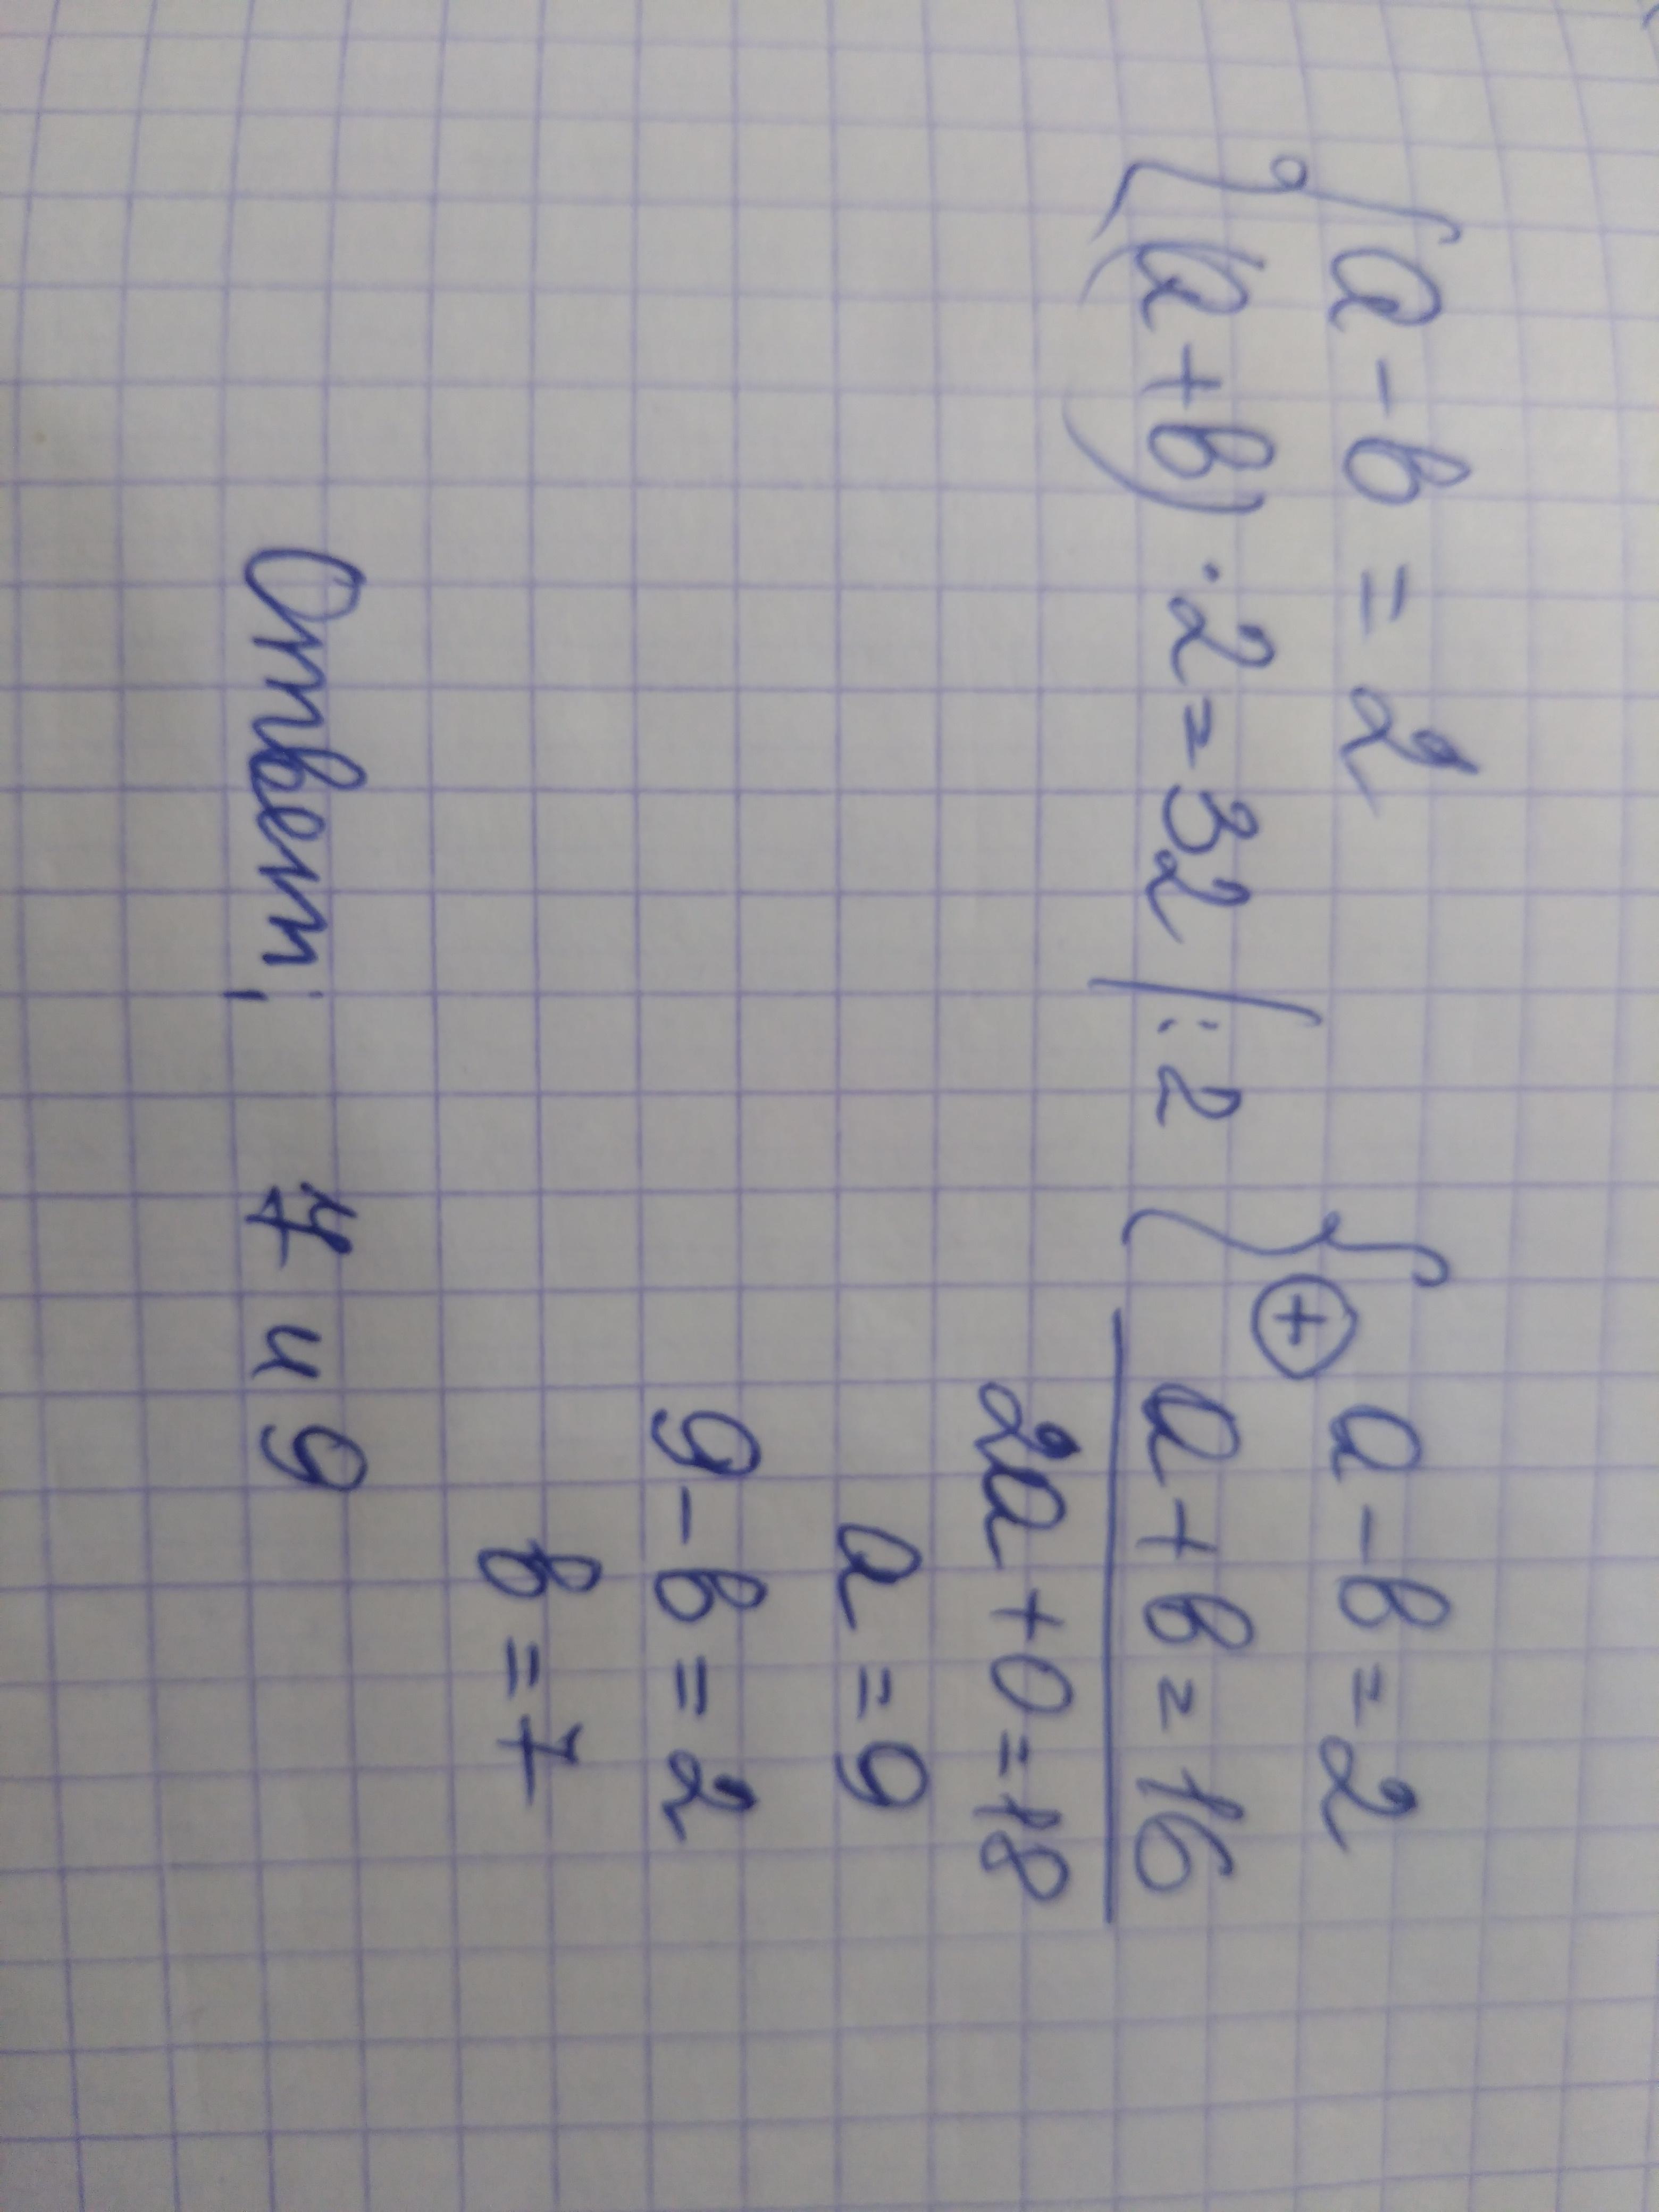 { a - b = 2
(a + b) · 2 = 32 | : 2
{ a - b = 2
⊕ a + b = 16
2a + 0 = 18
a = 9
9 - b = 2
b = 7
Ответ; 7 и 9